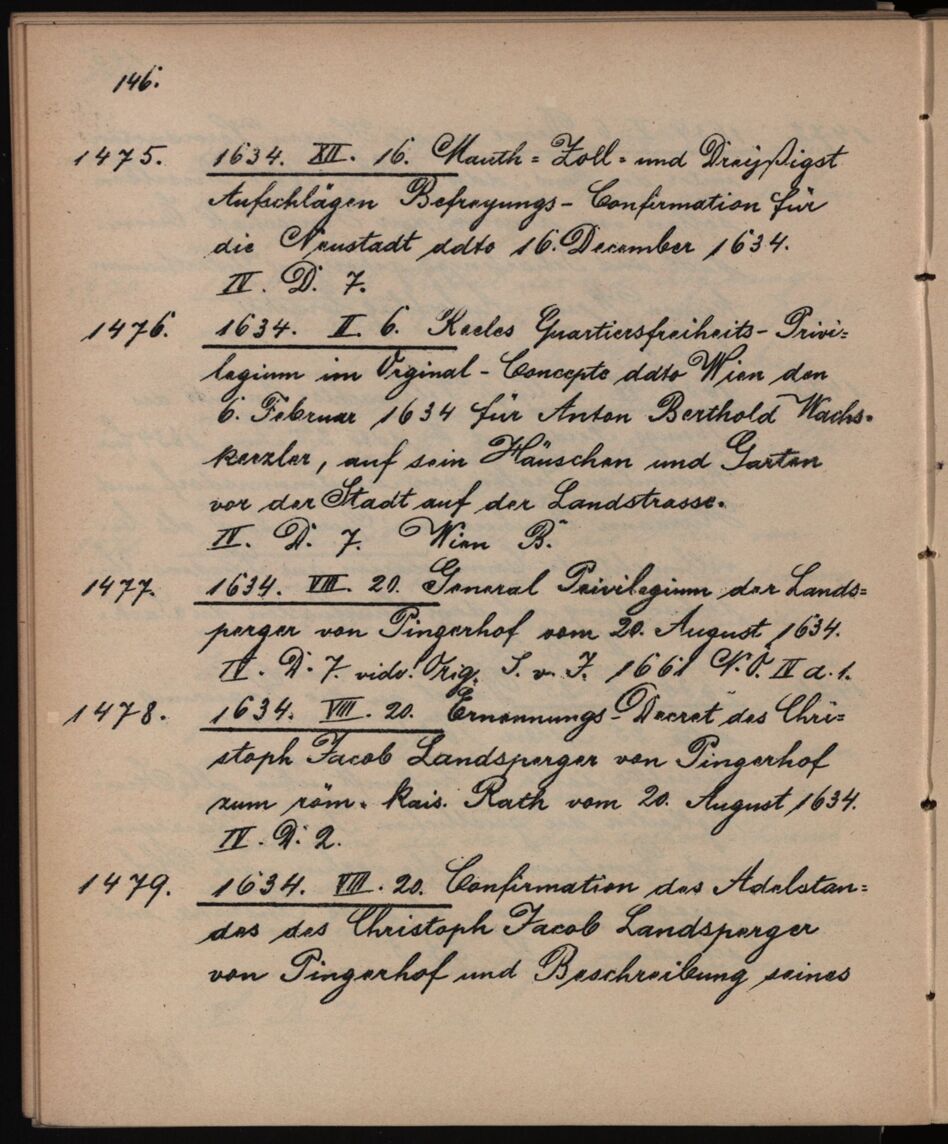 146.
1475. 1634. XII. 16. Mauth= Zoll= und Dreyßigst
Aufschlägen Befreyungs- Confirmation für
die Neustadt ddto 16. December 1634.
IV. D. 7.
1476. 1634. II. 6. Reeles Quartiersfreiheits- Privi=
legium im Orginal- Concepte ddto Wien den
6. Februar 1634 für Anton Berthold Wachs=
kerzler, auf sein Häuschen und Garten
vor der Stadt auf der Landstrasse.
IV. D. 7. Wien B.
1477. 1634. VIII. 20. General Privilegium der Lands=
perger von Pingerhof vom 20. August 1634.
IV. D. 7. vide! Orig. S. v. J. 1661 N.Ö. IV d. 1.
1478. 1634. VIII. 20. Ernennungs-Decret des Chri=
stoph Jacob Landsperger von Pingerhof
zum röm. kais. Rath vom 20. August 1634.
IV. D. 2.
1479. 1634. VIII. 20. Confirmation des Adelstan=
des des Christoph Jacob Landsperger
von Pingerhof und Beschreibung seines